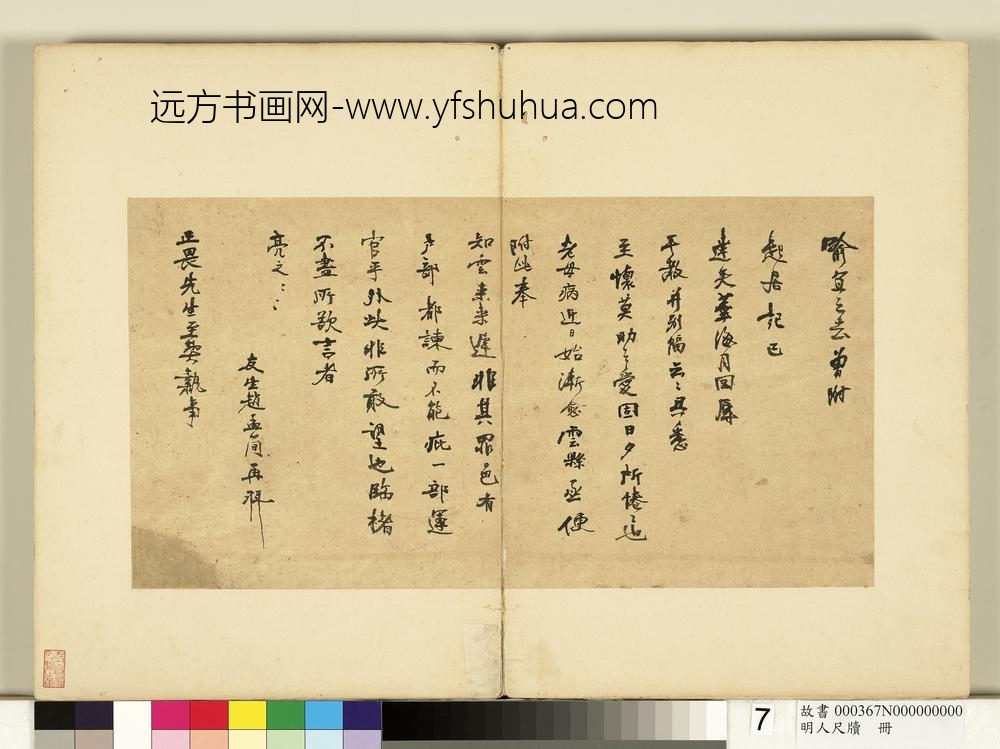 远方书画网-www.yfshuhua.com
喻宜之去曾附
起居記已
達矣蓂海月回辱
手教并別幅云〻具悉
至懷莫助之愛固日夕所惓〻也
老母病近日始漸愈雲縣丞便
附此奉
知雲來未遲非其罪邑有
戶部都諫而不能庇一部運
官乎外此非所敢望也臨楮
不盡所欲言者
亮之〻〻
友生趙孟簡再拜
正畏先生至契執事
7
故書 000367N000000000
明人尺牘 冊